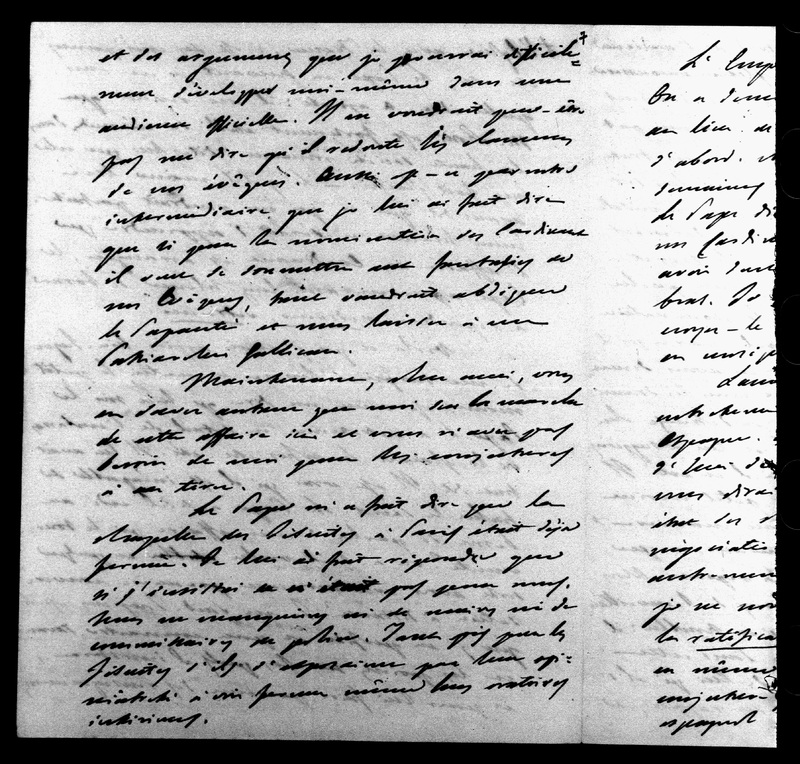 7
et des arguments que je pourrai difficile=
ment développer moi-même dans une
audience officielle. Il ne voudrait peut-être
pas me dire qu'il redoute les clameurs
de nos évêques. Aussi par notre
intermédiaire que je lui ai fait dire
que si pour la nomination des Cardinaux
il veut se soumettre aux fantaisies de
nos Evêques, mieux vaudrait abdiquer
la Papauté et nous laisser à un
Patriarche Gallican.
Maintenant, cher ami, vous
en savez autant que moi sur la marche
de cette affaire ici et vous n'avez pas
besoin de moi pour les conjectures
à en tirer.
Le Pape m'a fait dire que la
chapelle des Jésuites à Paris était déjà
fermée. Je lui ai fait répondre que
si j'insistai ce n'était pas pour nous.
Nous ne manquons ni de maires ni de
commissaires de police. Tant pis pour les
Jésuites s'ils s'exposaient par leur opi=
niâtreté à voir fermer même leurs oratoires
intérieurs.
L'Emp
On a donn
au lieu de
d'abord.
semaines
le Pape di
un Cardin
avoir
bras.
envoye-le
en
entretenu
Espagne.
d'hui
vous dirai
état des
négociatio
autrement
je ne
la ratifica
en même
conjectur-
espagnol